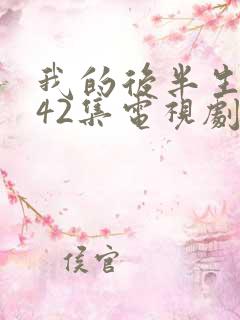 我的後半生
42集電視劇
侯官